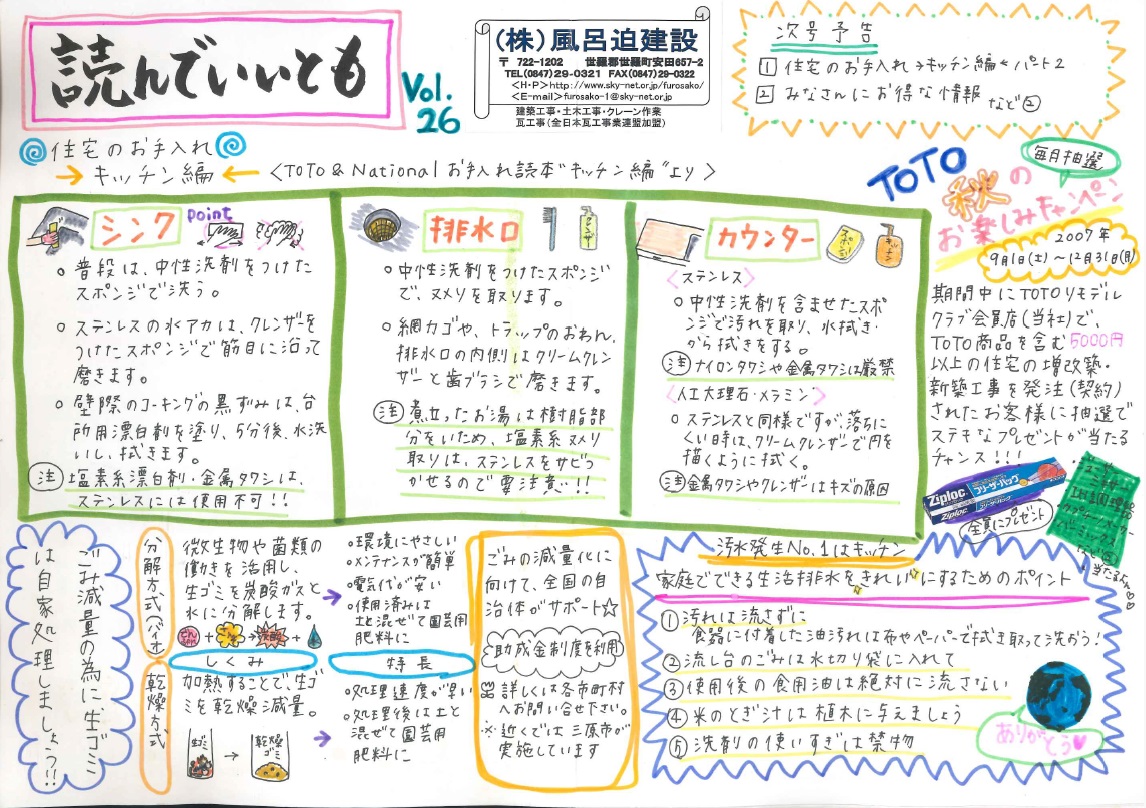 読んでいいとも
Vol.
26
(株)風呂迫建設
〒 722-1202 世羅郡世羅町安田657-2
TEL(0847)29-0321 FAX(0847)29-0322
<H・P>http://www.sky-net.or.jp/furosako/
<E-mail>furosako-1@sky-net.or.jp
建築工事・土木工事・クレーン作業
瓦工事(全日本瓦工事業連盟加盟)
次号予告
1 住宅のお手入れ→キッチン編←パート2
2 みなさんにお得な情報
など
住宅のお手入れ
→キッチン編← <TOTO & National お手入れ読本"キッチン編"より>
シンク
point
○普段は、中性洗剤をつけた
スポンジで洗う。
○ステンレスの水アカは、クレンザーを
つけたスポンジで筋目に沿って
磨きます。
○壁際のコーキングの黒ずみは、台
所用漂白剤を塗り、5分後、水洗
いし、拭きます。
注 塩素系漂白剤・金属タワシは、
ステンレスには使用不可!!
排水口
○中性洗剤をつけたスポンジ
で、ヌメリを取ります。
○網カゴや、トラップのおわん、
排水口の内側はクリームクレン
ザーと歯ブラシで磨きます。
注 煮立ったお湯は樹脂部
分をいため、塩素系ヌメリ
取りは、ステンレスをサビつ
かせるので要注意!!
カウンター
スポンジ
<ステンレス>
○中性洗剤を含ませたスポ
ンジで汚れを取り、水拭き・
から拭きをする。
注 ナイロンタワシや金属タワシは厳禁
<人工大理石・メラミン>
○ステンレスと同様ですが、落ちに
くい時は、クリームクレンザーで円を
描くように拭く。
注 金属タワシやクレンザーはキズの原因
TOTO
毎月抽選
秋の
お楽しみキャンペーン
2007年
9月1日(土)〜12月31日(月)
期間中にTOTOリモデル
クラブ会員店(当社)で、
TOTO商品を含む5000円
以上の住宅の増改築・
新築工事を発注(契約)
されたお客様に抽選で
ステキなプレゼントが当たる
チャンス!!!
Ziploc フリーザーバッグ
Ziploc
全員にプレゼント
当たるかも
ごみ減量の為に、生ゴミ
は自家処理しましょう!!
分解方式(バイオ)
微生物や菌類の
働きを活用し、
生ゴミを炭酸ガスと
水に分解します。
しくみ
○環境にやさしい
○メンテナンスが簡単
○電気代が安い
○使用済みは
土と混ぜて園芸用
肥料に
特長
乾燥方式
加熱することで、生ゴ
ミを乾燥減量。
生ゴミ
→
乾燥ゴミ
○処理速度が早い
○処理後は土と
混ぜて園芸用
肥料に
ごみの減量化に
向けて、全国の自
治体がサポート☆
助成金制度を利用
詳しくは各市町村
へお問い合せ下さい。
※近くでは三原市が
実施しています
汚水発生No.1はキッチン
家庭でできる生活排水をきれいにするためのポイント
①汚れは流さずに
食器に付着した油汚れは布やペーパーで拭き取って洗おう!
②流し台のごみは水切り袋に入れて
③使用後の食用油は絶対に流さない
④米のとぎ汁は植木に与えましょう
⑤洗剤の使いすぎは禁物
ありがとう♥